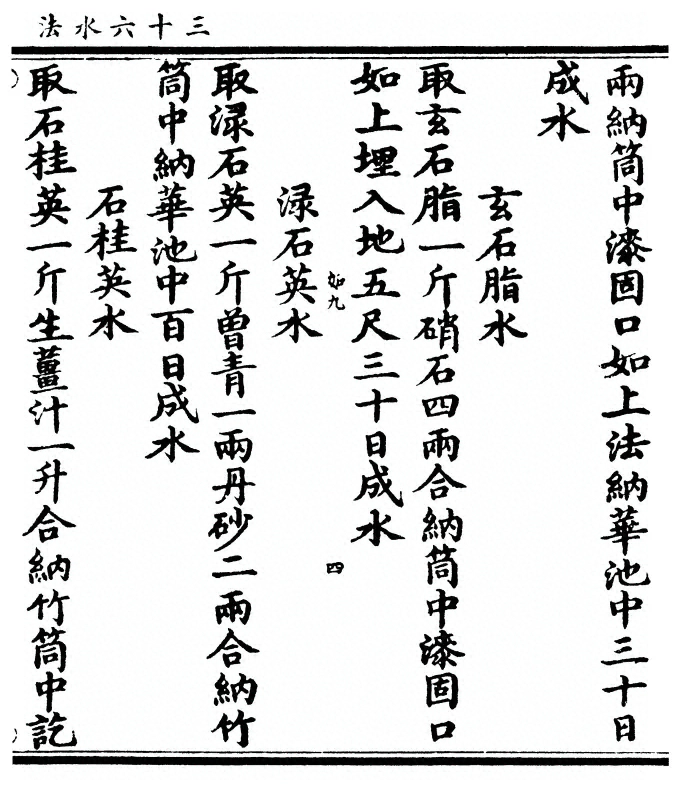 三十六水法
兩納筒中漆固口如上法納華池中三十日
成水
玄石脂水
取玄石脂一斤硝石四兩合納筒中漆固口
如上埋入地五尺三十日成水
如九
四
渌石英水
取渌石英一斤曾青一兩丹砂二兩合納竹
筒中納華池中百日成水
石桂英水
取石桂英一斤生薑汁一升合納竹筒中訖